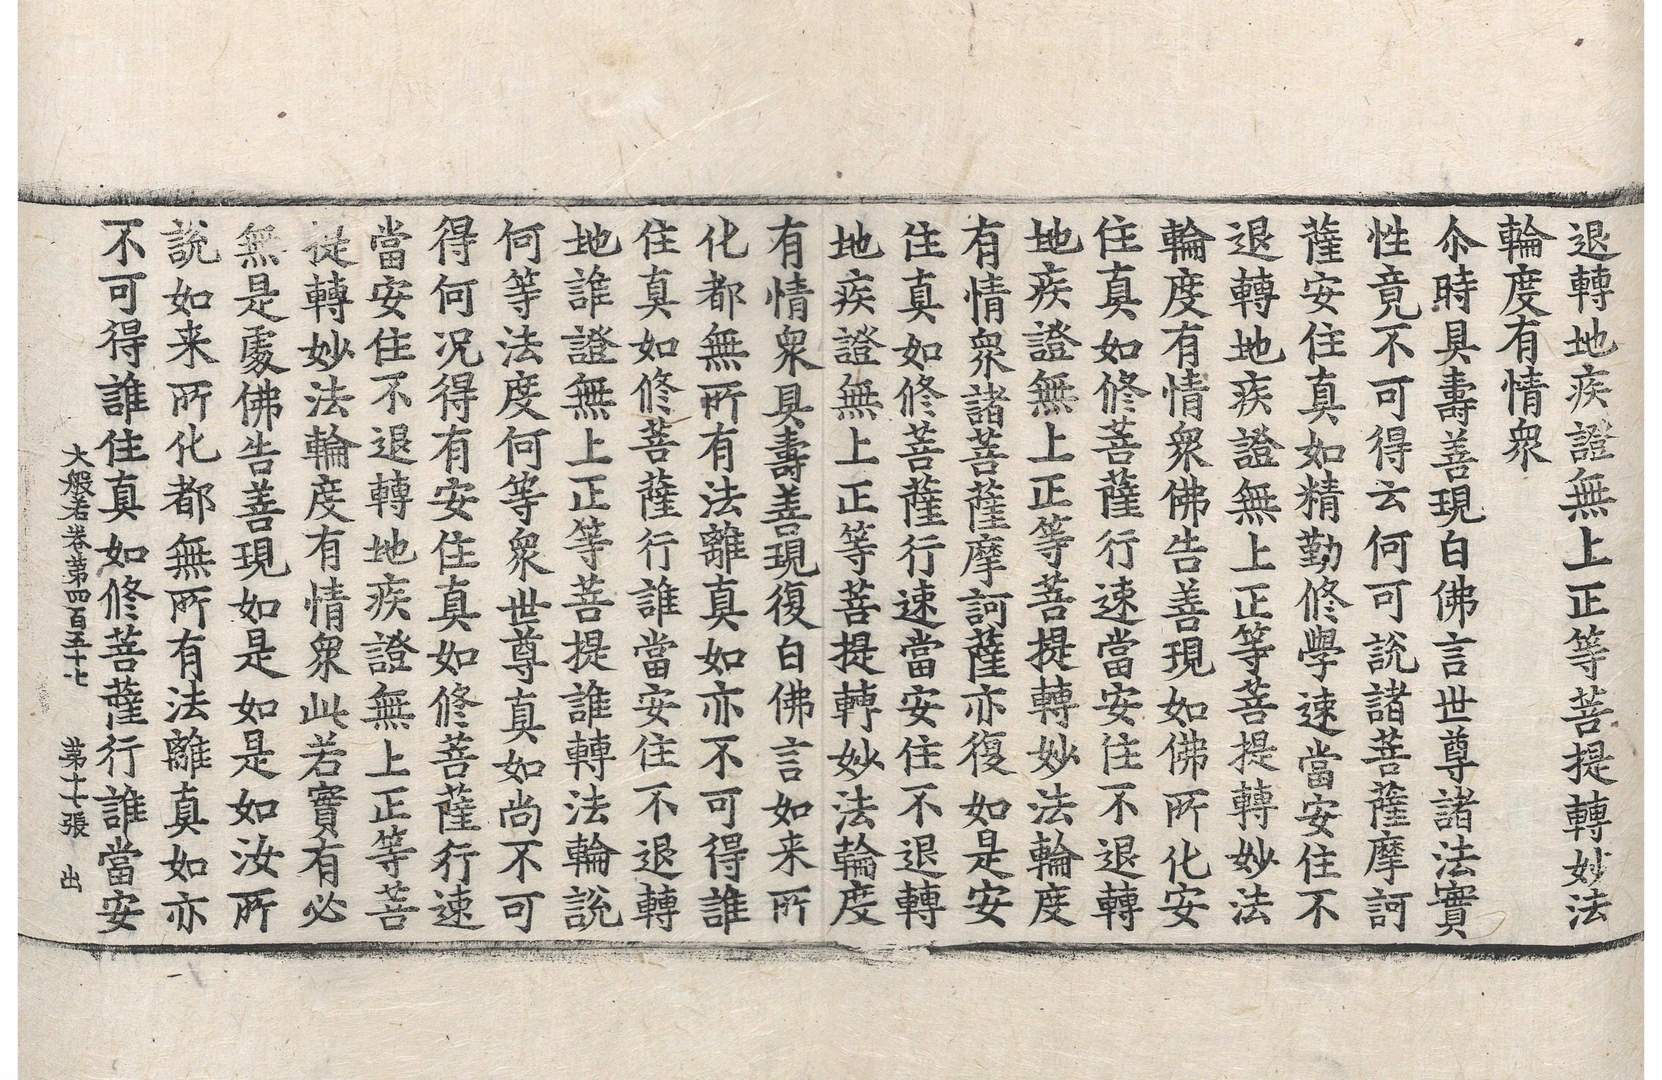 退轉地疾證無上正等菩提轉妙法
輪度有情衆
尒時具壽善現白佛言世尊諸法實
性竟不可得云何可說諸菩薩摩訶
薩安住真如精勤修學速當安住不
退轉地疾證無上正等菩提轉妙法
輪度有情衆佛告善現如佛所化安
住真如修菩薩行速當安住不退轉
地疾證無上正等菩提轉妙法輪度
有情衆諸菩薩摩訶薩亦復如是安
住真如修菩薩行速當安住不退轉
地疾證無上正等菩提轉妙法輪度
有情衆具壽善現復白佛言如来所
化都無所有法離真如亦不可得誰
住真如修菩薩行誰當安住不退轉
地誰證無上正等菩提誰轉法輪說
何等法度何等衆世尊真如尚不可
得何況得有安住真如修菩薩行速
當安住不退轉地疾證無上正等菩
提轉妙法輪度有情衆此若實有必
無是處佛告善現如是如是如汝所
說如来所化都無所有法離真如亦
不可得誰住真如修菩薩行誰當安
大般若卷第四百五十七　第十七張　出